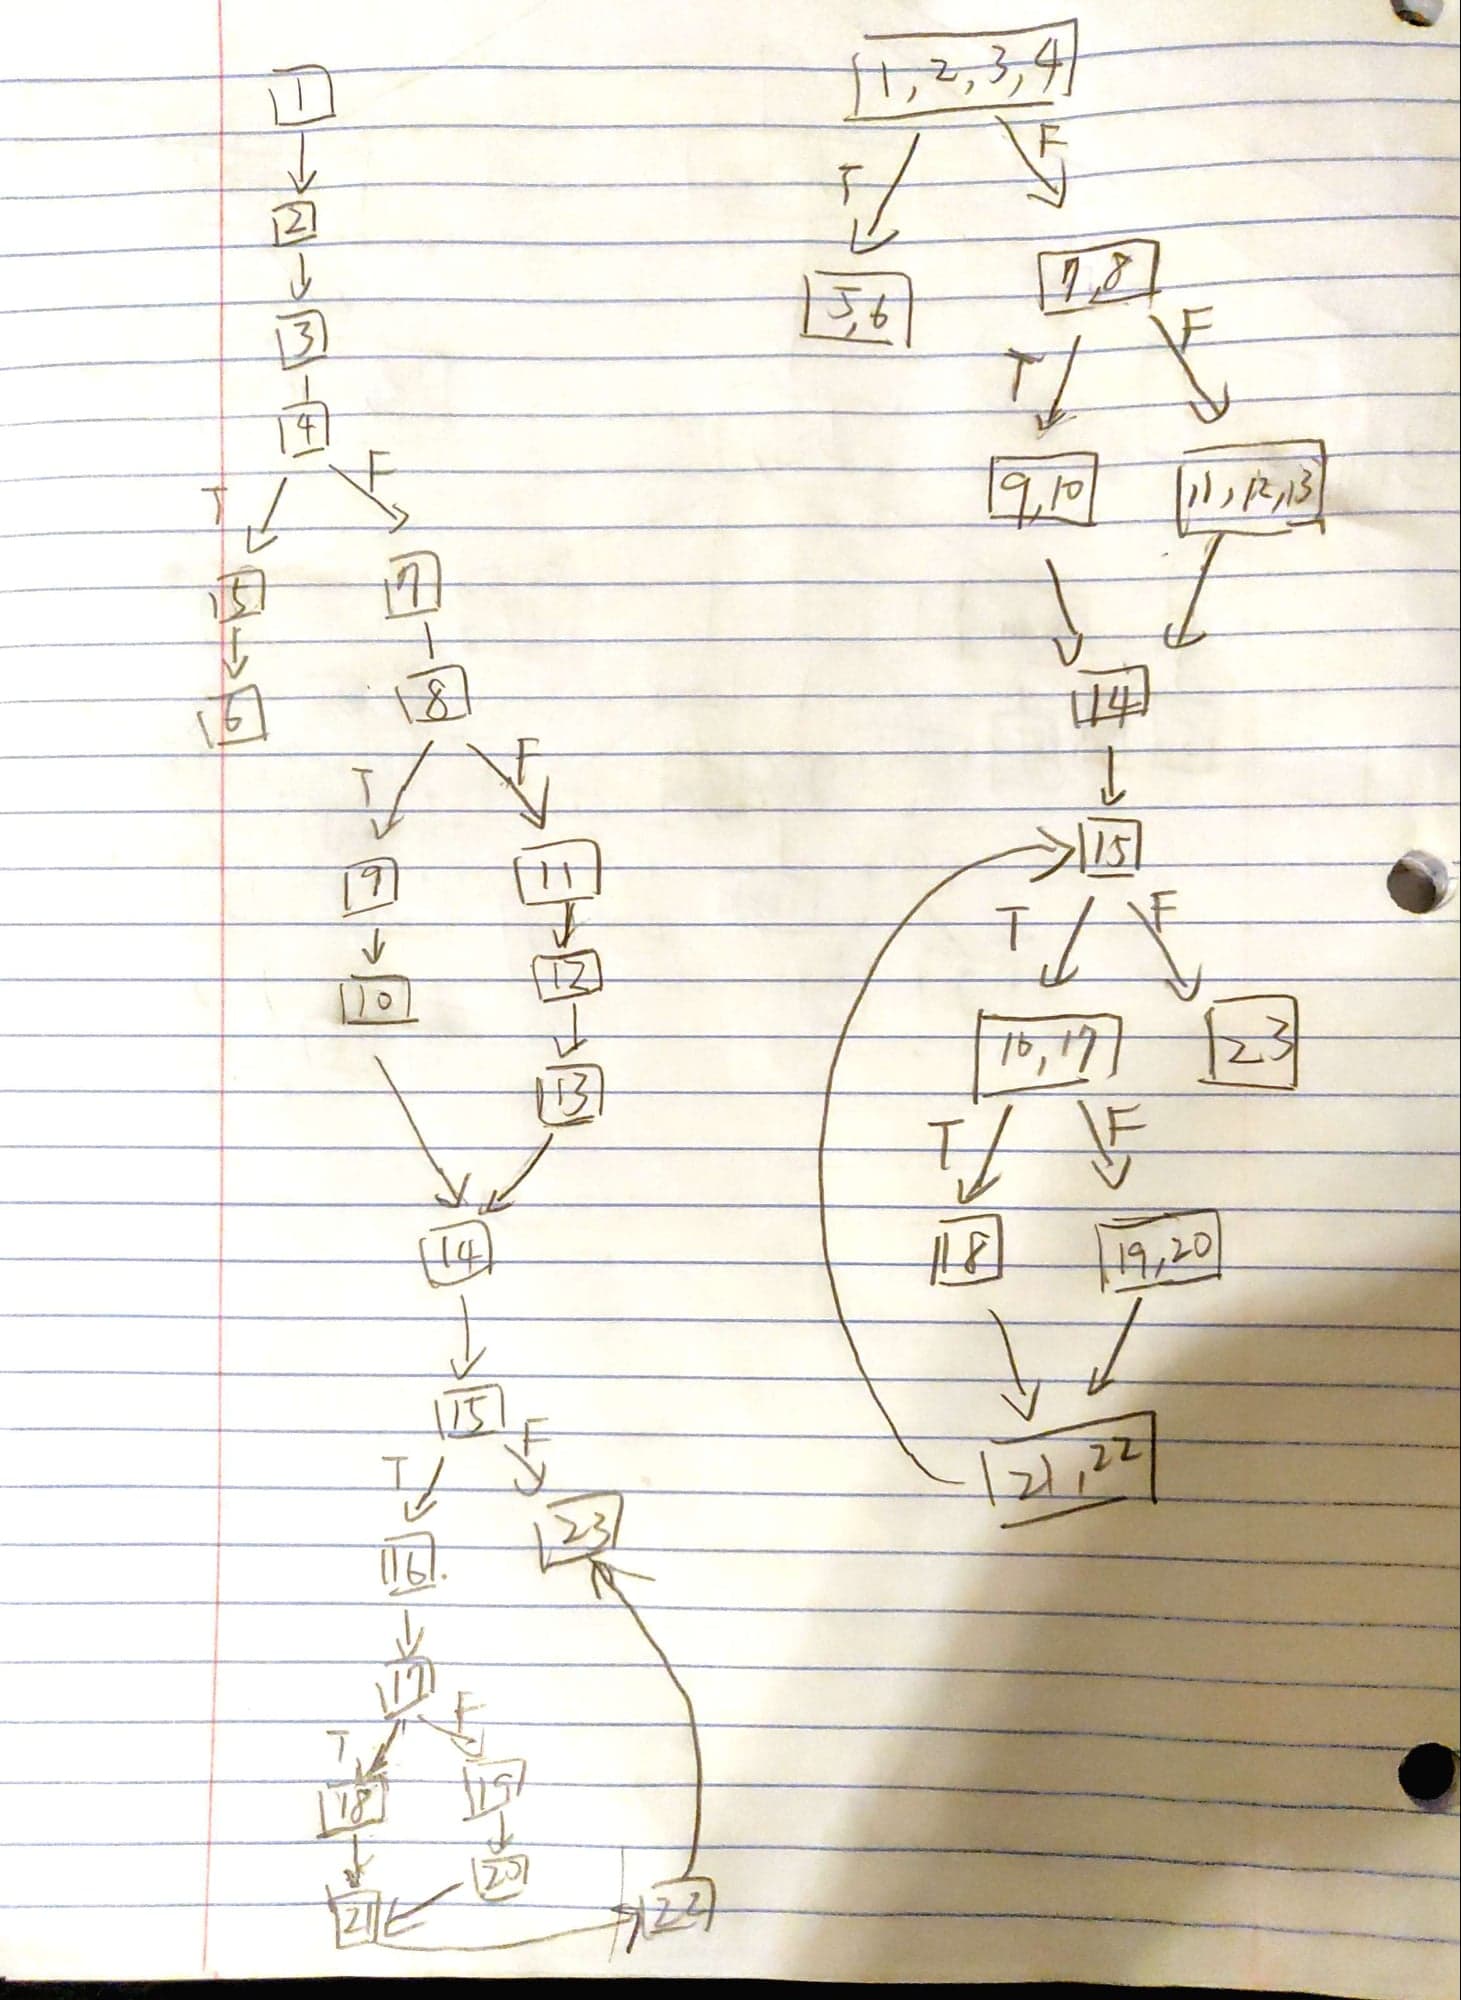 1
2
3
4
T F
5 7
6 8
T F
9 11
10 12
13
14
15
T F
16 23
17
T F
18 19
20
21 22
1,2,3,4
T F
5,6 7,8
T F
9,10 11,12,13
14
15
T F
16,17 23
T F
18 19,20
21,22